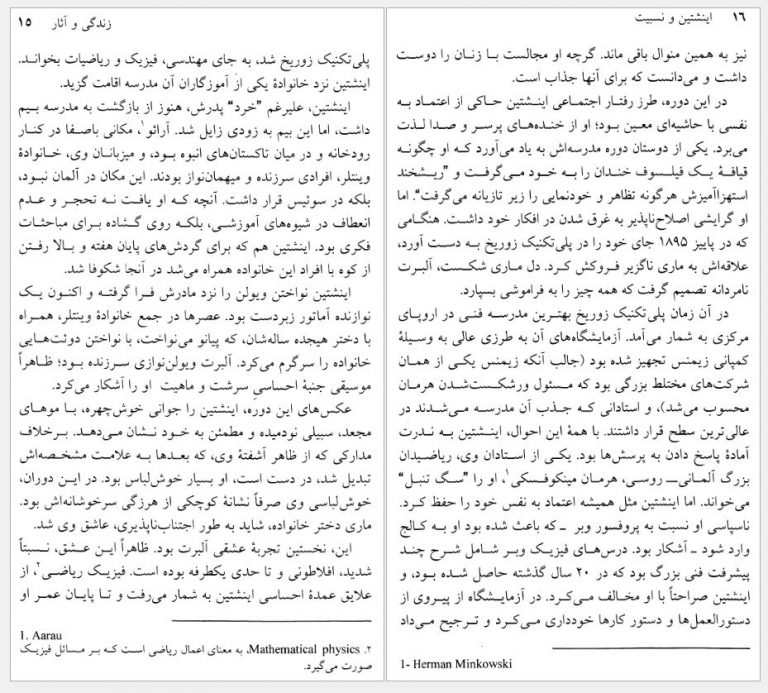 زندگی و آثار ۱۵
پلی‌تکنیک زوریخ شد، به جای مهندسی، فیزیک و ریاضیات بخواند.
اینشتین نزد خانوادهٔ یکی از آموزگاران آن مدرسه اقامت گزید.
اینشتین، علیرغم "خرد" پدرش، هنوز از بازگشت به مدرسه بیم
داشت، اما این بیم به زودی زایل شد. آرائو۱، مکانی باصفا در کنار
رودخانه و در میان تاکستان‌های انبوه بود، و میزبانان وی، خانوادهٔ
وینتلر، افرادی سرزنده و میهمان‌نواز بودند. این مکان در آلمان نبود،
بلکه در سوئیس قرار داشت. آنچه که او یافت نه تحجر و عدم
انعطاف در شیوه‌های آموزشی، بلکه روی گشاده برای مباحثات
فکری بود. اینشتین هم که برای گردش‌های پایان هفته و بالا رفتن
از کوه با افراد این خانواده همراه می‌شد در آنجا شکوفا شد.
اینشتین نواختن ویولن را نزد مادرش فرا گرفته و اکنون یک
نوازنده آماتور زبردست بود. عصرها در جمع خانوادهٔ وینتلر، همراه
با دختر هیجده ساله‌شان، که پیانو می‌نواخت، با نواختن دوئت‌هایی
خانواده را سرگرم می‌کرد. آلبرت ویولن‌نوازی سرزنده بود؛ ظاهراً
موسیقی جنبهٔ احساسیِ سرشت و ماهیت او را آشکار می‌کرد.
عکس‌های این دوره، اینشتین را جوانی خوش‌چهره، با موهای
مجعد، سبیلی نودمیده و مطمئن به خود نشان می‌دهد. برخلاف
مدارکی که از ظاهر آشفتهٔ وی، که بعدها به علامت مشخصه‌اش
تبدیل شد، در دست است، او بسیار خوش‌لباس بود. در این دوران،
خوش‌لباسی وی صرفاً نشانهٔ کوچکی از هرزگی سرخوشانه‌اش بود.
ماری دختر خانواده، شاید به طور اجتناب‌ناپذیری، عاشق وی شد.
این، نخستین تجربهٔ عشقی آلبرت بود. ظاهراً این عشق، نسبتاً
شدید، افلاطونی و تا حدی یکطرفه بوده است. فیزیک ریاضی۲، از
علایق عمدهٔ احساسی اینشتین به شمار می‌رفت و تا پایان عمر او
1. Aarau
۲. Mathematical physics، به معنای اعمال ریاضی است که بر مسائل فیزیک
صورت می‌گیرد.
۱۶ اینشتین و نسبیت
نیز به همین منوال باقی ماند. گرچه او مجالست با زنان را دوست
داشت و می‌دانست که برای آنها جذاب است.
در این دوره، طرز رفتار اجتماعی اینشتین حاکی از اعتماد به
نفسی با حاشیه‌ای معین بود؛ او از خنده‌های پرسر و صدا لذت
می‌برد. یکی از دوستان دوره مدرسه‌اش به یاد می‌آورد که او چگونه
قیافهٔ یک فیلسوف خندان را به خود می‌گرفت و "ریشخند
استهزاآمیزش هرگونه تظاهر و خودنمایی را زیر تازیانه می‌گرفت". اما
او گرایشی اصلاح‌ناپذیر به غرق شدن در افکار خود داشت. هنگامی
که در پاییز ۱۸۹۵ جای خود را در پلی‌تکنیک زوریخ به دست آورد،
علاقه‌اش به ماری ناگزیر فروکش کرد. دل ماری شکست، آلبرت
نامردانه تصمیم گرفت که همه چیز را به فراموشی بسپارد.
در آن زمان پلی‌تکنیک زوریخ بهترین مدرسه فنی در اروپای
مرکزی به شمار می‌آمد. آزمایشگاه‌های آن به طرزی عالی به وسیلهٔ
کمپانی زیمنس تجهیز شده بود (جالب آنکه زیمنس یکی از همان
شرکت‌های مختلط بزرگی بود که مسئول ورشکست‌شدن هرمان
محسوب می‌شد)، و استادانی که جذب آن مدرسه می‌شدند در
عالی‌ترین سطح قرار داشتند. با همهٔ این احوال، اینشتین به ندرت
آمادهٔ پاسخ دادن به پرسش‌ها بود. یکی از استادان وی، ریاضیدان
بزرگ آلمانی‌ــ روسی، هرمان مینکوفسکی۱، او را "سگ تنبل"
می‌خواند. اما اینشتین مثل همیشه اعتماد به نفس خود را حفظ کرد.
ناسپاسی او نسبت به پروفسور وبر ـ که باعث شده بود او به کالج
وارد شود ـ آشکار بود. درس‌های فیزیک وبر شامل شرح چند
پیشرفت فنی بزرگ بود که در ۲۰ سال گذشته حاصل شده بود، و
اینشتین صراحتاً با او مخالف می‌کرد. در آزمایشگاه از پیروی از
دستورالعمل‌ها و دستور کارها خودداری می‌کرد و ترجیح می‌داد
1- Herman Minkowski